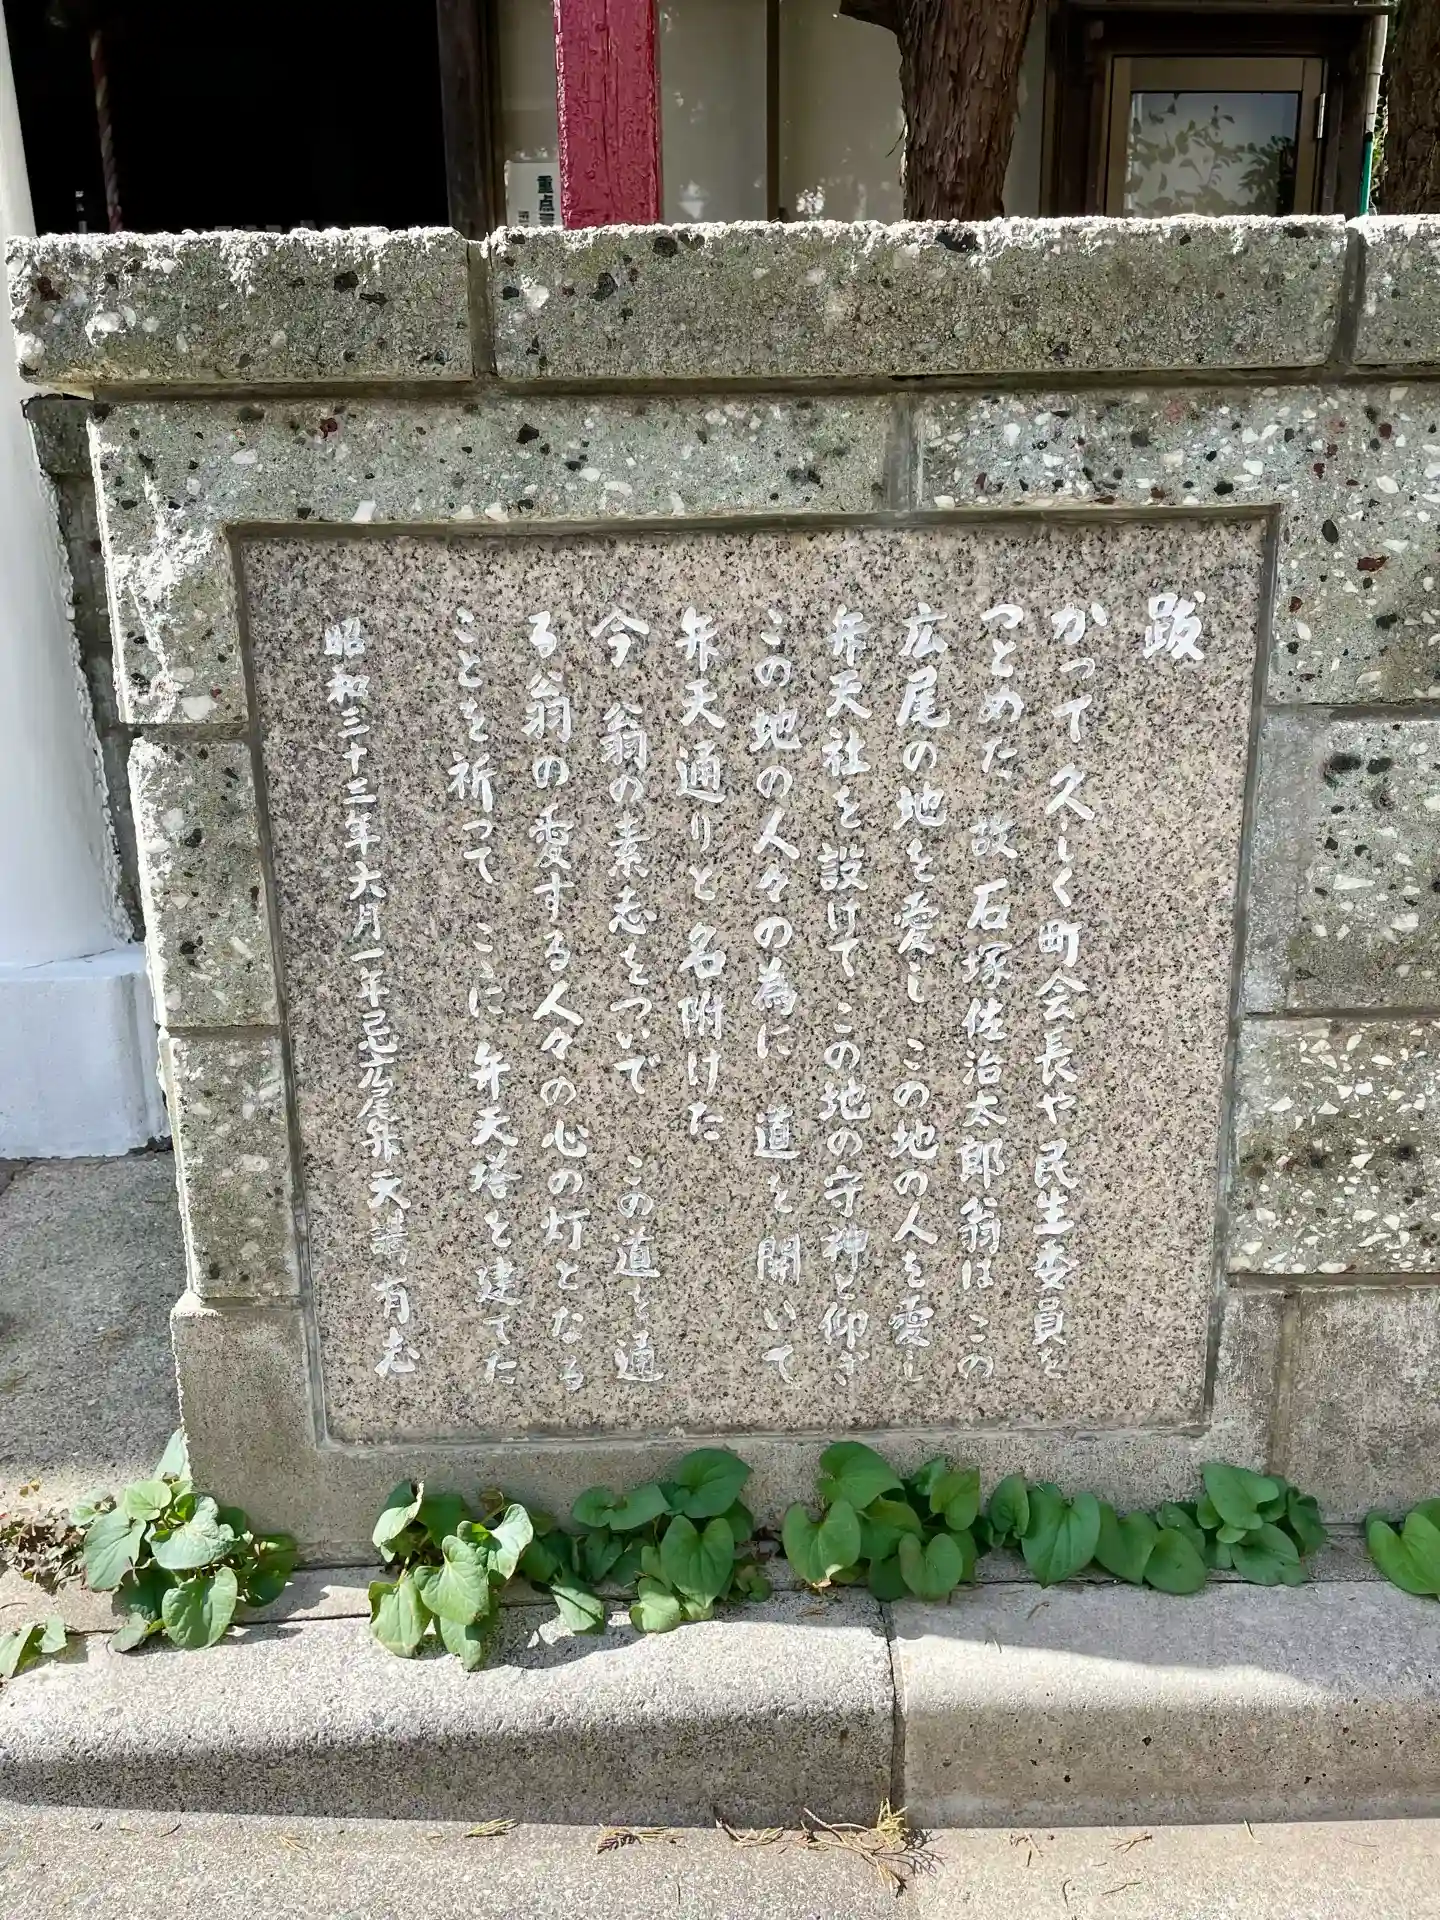 跋
かつて久しく町会長や民生委員を
つとめた故石塚佐治太郎翁はこの
広尾の地を愛しこの地の人を愛し
弁天社を設けてこの地の守神と仰ぎ
この地の人々の為に道を開いて
弁天通りと名附けた
今翁の素志をついでこの道を通
る翁の愛する人々の心の灯となる
ことを祈ってこゝに弁天塔を建てた
昭和三十三年六月一年忌広尾弁天講有志
重点